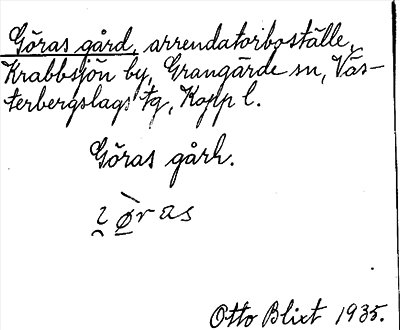 Göras gård, arrendatorboställe,
Krabbsjön by, Grangärde sn, Väs-
terbergslags tg, Kopp l.
Göras gårh.
Otto Blixt 1935.